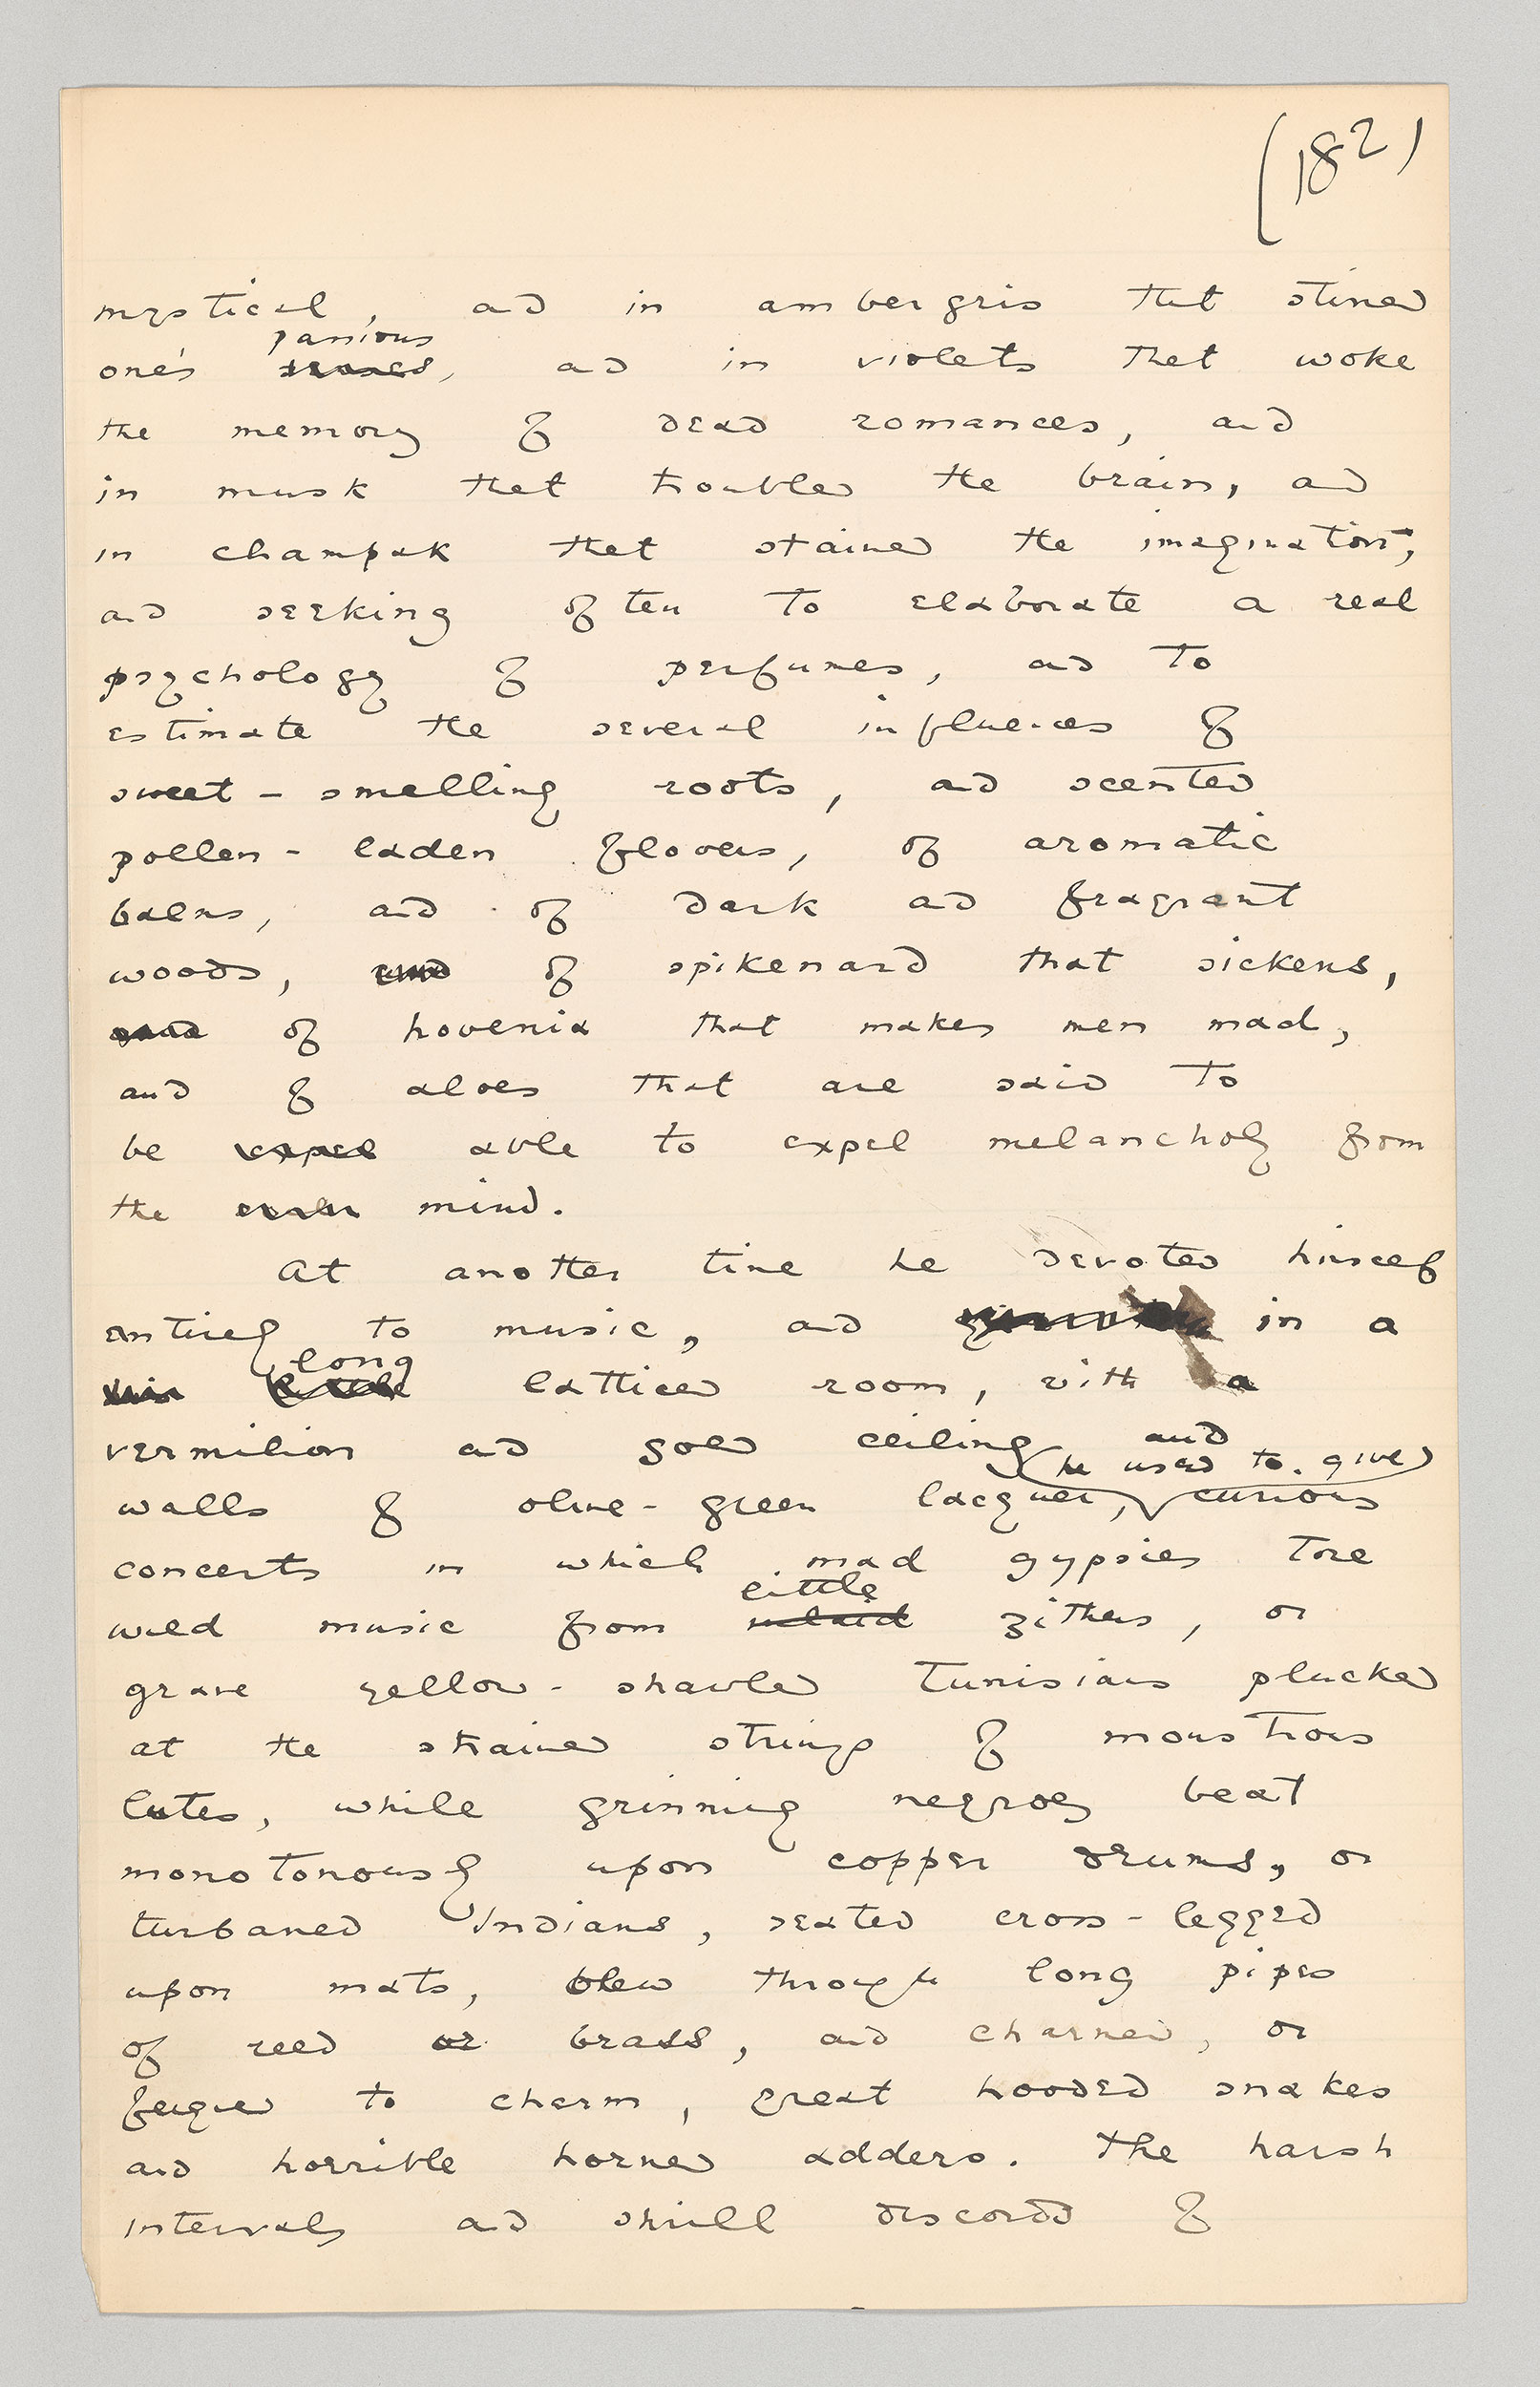 (182)
mystical, and in ambergris that stirred
passions
one's senses, and in violets that woke
the memory of dead romances, and
in musk that troubled the brain, and
in champak that stained the imagination,
and seeking often to elaborate a real
psychology of perfumes, and to
estimate the several influences of
sweet-smelling roots, and scented
pollen-laden flowers, of aromatic
balms, and of dark and fragrant
woods, and of spikenard that sickens,
and of hovenia that makes men mad,
and of aloes that are said to
be expel able to expel melancholy from
the mind.
At another time he devoted himself
entirely to music, and in a
long
latticed room, with a
vermilion and gold ceiling and
he used to give
walls of olive-green lacquer, curious
concerts in which mad gypsies tore
little
wild music from inlaid zithers, or
grave yellow-shawled Tunisians plucked
at the strained strings of monstrous
lutes, while grinning negroes beat
monotonously upon copper drums, or
turbaned Indians, seated cross-legged
upon mats, blew through long pipes
of reed or brass, and charmed, or
feigned to charm, great hooded snakes
and horrible horned adders. The harsh
intervals and shrill discords of